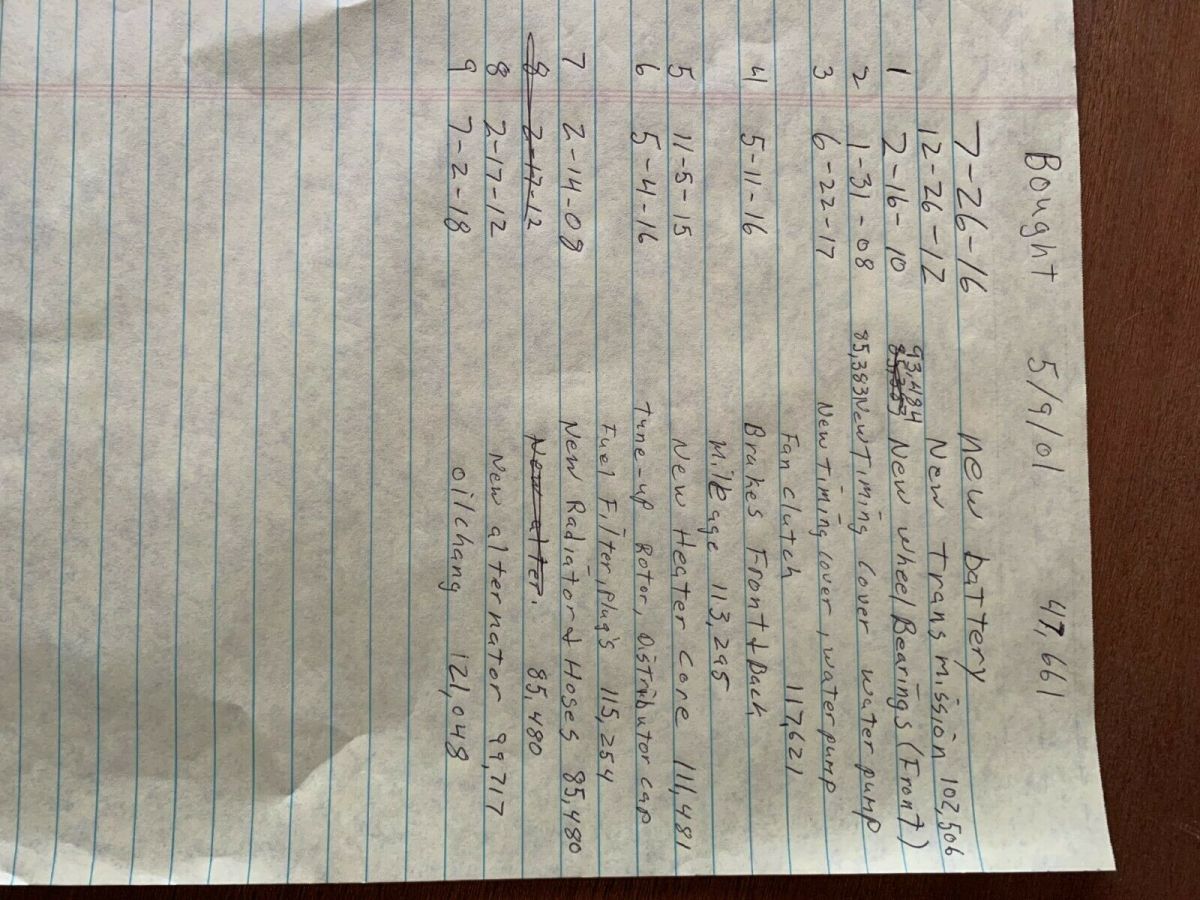 Bought 5/9/01 47,661
7-26-16 new battery
12-26-12 New Transmission 102,506
1 2-16-10 93,484 New wheel Bearings (Front)
2 1-31-08 85,383 New Timing Cover water pump
3 6-22-17 New Timing Cover, water pump
Fan clutch 117,621
4 5-11-16 Brakes Front & Back
Mileage 113,295
5 11-5-15 New Heater Core 111,481
6 5-4-16 Tune-up Rotor, Distributor cap
Fuel Filter, plug's 115,254
7 2-14-08 New Radiator & Hoses 85,480
8 2-17-12 New alter. 85,480
8 2-17-12 New alternator 99,717
9 7-2-18 oil chang 121,048